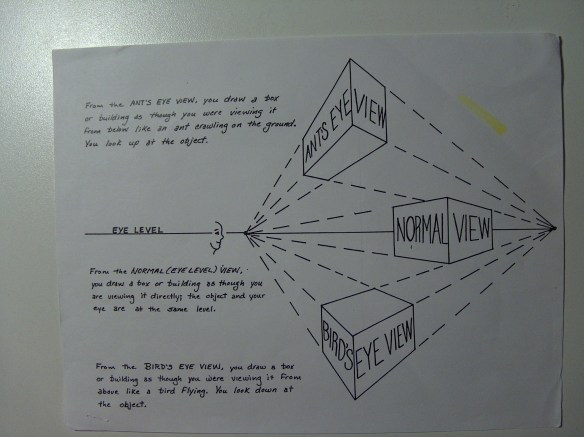 From the ANT'S EYE VIEW, you draw a box
or building as though you were viewing it
from below like an ant crawling on the ground.
You look up at the object.
ANT'S EYE VIEW
EYE LEVEL
NORMAL VIEW
From the NORMAL (EYE LEVEL) VIEW,
you draw a box or building as though you
are viewing it directly; the object and your
eye are at the same level.
BIRD'S EYE VIEW
From the BIRD'S EYE VIEW, you draw a box
or building as though you were viewing it from
above like a bird flying. You look down at
the object.